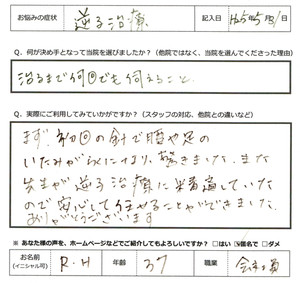 お悩みの症状 逆子治療 記入日 H25年5月31日
Q. 何が決め手となって当院を選びましたか?(他院ではなく、当院を選んでくださった理由)
治るまで何回でも伺えること
Q. 実際にご利用してみていかがですか?(スタッフの対応、他院との違いなど)
まず、初回の針で腰や足の
いたみが になり、驚きました。また
先生が逆子治療に 通していた
ので安心して任せることができました。
ありがとうございます
※ あなた様の声を、ホームページなどでご紹介してもよろしいですか? □はい ☑匿名で □ダメ
お名前 (イニシャル可) R.H 年齢 37 職業 会社員